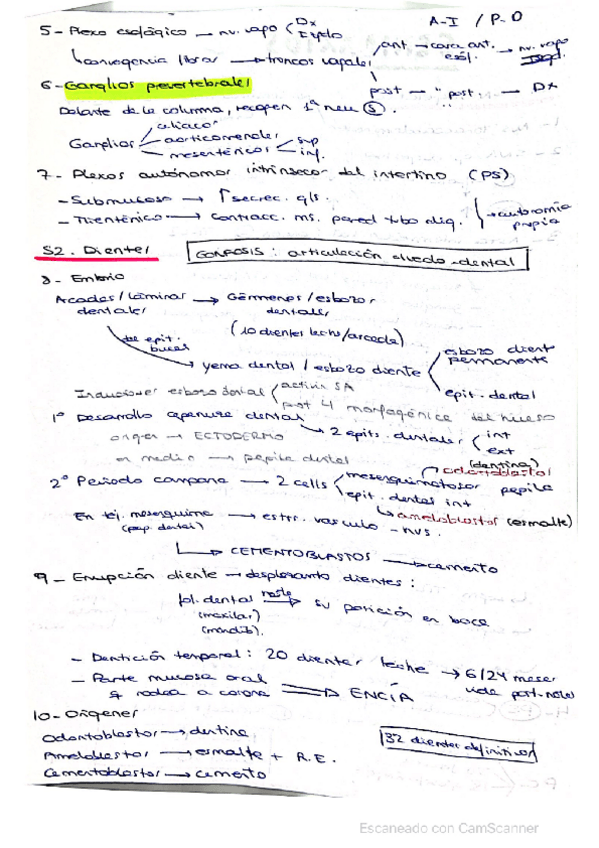 A-I / P-D
5- Plexo esofágico → nv. vago < Dx Izqdo
ant. → cara ant. esóf. → nv. vago Izqd.
↳ convergencia fibras → troncos vagales
post. → " post. → Dx
6- Ganglios prevertebrales
Delante de la columna, recogen 1ª neu (S).
Ganglios celiacos
aorticorrenales
mesentéricos < sup inf.
7- Plexos autónomos intrínsecos del intestino (PS)
- Submucoso → ↑ secrec. gls.
- Mientérico → contracc. ms. pared tubo dig. → autonomía propia
S2. Dientes
GONFOSIS: articulación alveolo-dental
8- Embrio
Arcadas/láminas dentales → Gérmenes/esbozos dentales
(10 dientes leche/arcada)
de epit. bucal
→ yema dental / esbozo diente < esbozo dient permanente
epit. dental
Inductores esbozo dental < activin ßA
4 morfogénica del hueso
1º Desarrollo dental → 2 epits. dentales < int ext
origen → ECTODERMO
en medio → papila dental
2º Periodo campana → 2 cells < mesenquimatosas papila → odontoblastos (dentina)
epit. dentes int
↳ ameloblastos (esmalte)
En tej. mesenquima (pap. dental) → estrr. vasculo-nvs.
↳ CEMENTOBLASTOS → cemento
9- Erupción diente → desplazamto dientes:
fol. dental (maxilar) (mandib). hasta → su posición en boca
- Dentición temporal: 20 dientes leche → 6/24 meses vida post-natal
- Parte mucosa oral q rodea a corona ⇒ ENCÍA
10- Orígenes
Odontoblastos → dentina
32 dientes definitivos
Ameloblastos → esmalte + R.E.
Cementoblastos → cemento
Escaneado con CamScanner